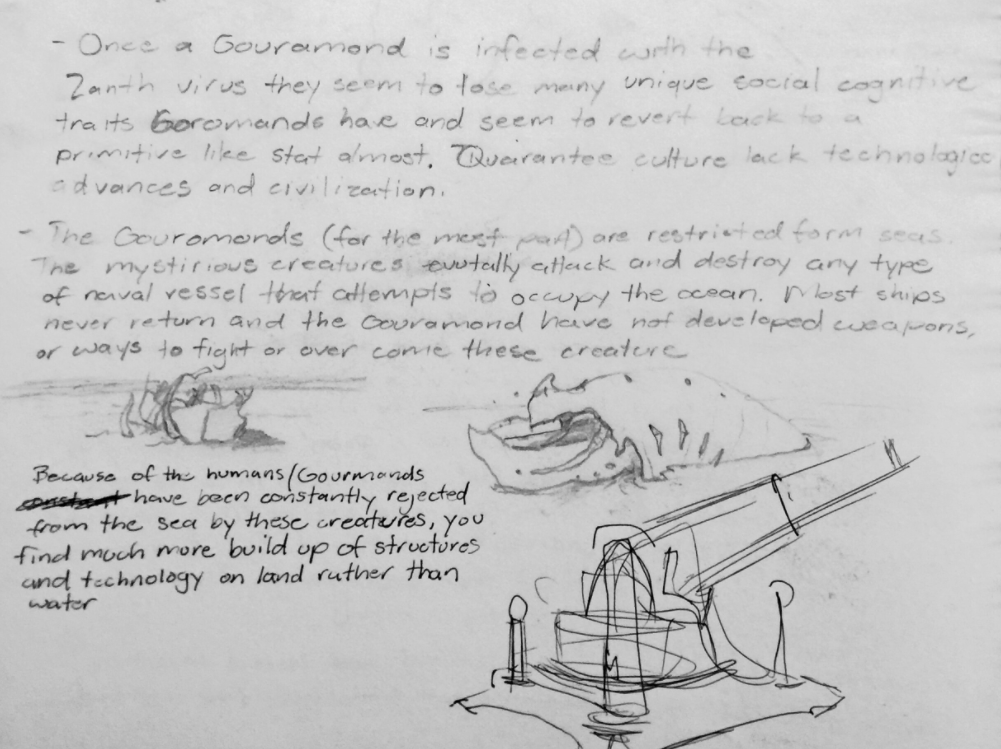 - Once a Gouramond is infected with the
Zanth virus they seem to lose many unique social cognitive
traits Goromands have and seem to revert back to a
primitive like stat almost. Quarantee culture lack technologica
advances and civilization.
- The Gouromonds (for the most part) are restricted form seas.
The mystirious creatures attack and destroy any type
of naval vessel that attempts to occupy the ocean. Most ships
never return and the Gouramond have not developed weapons,
or ways to fight or over come these creature
Because of the humans/Gourmands
have been constantly rejected
from the sea by these creatures, you
find much more build up of structures
and technology on land ruther than
water